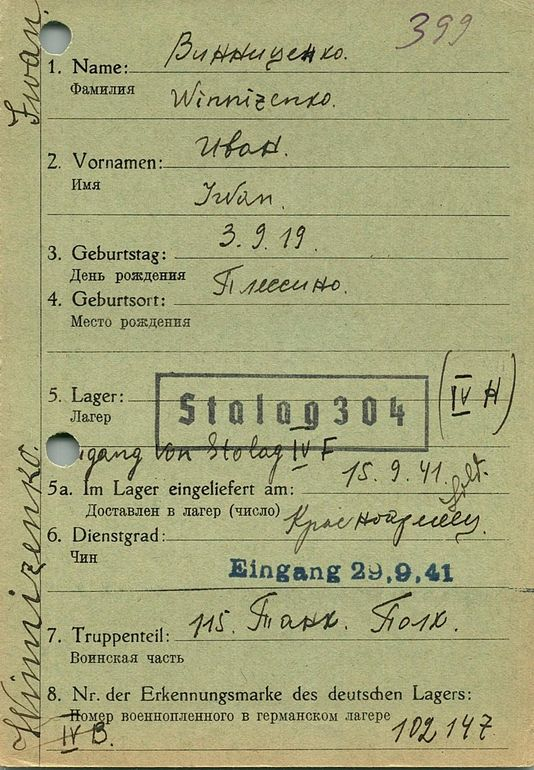 399
Винниценко.
1. Name:
Фамилия
Winnizenko.
Иван.
2. Vornamen:
Имя
Iwan.
3.9.19.
3. Geburtstag:
День рождения
Плессино.
4. Geburtsort:
Место рождения
5. Lager:
Лагерь
Stalag 304
(IV H)
gang von Stalag IV F
15.9.41.
5a. Im Lager eingeliefert am:
Доставлен в лагерь (число)
Красноармеец.
6. Dienstgrad:
Чин
Eingang 29.9.41
115. Танк. Полк.
7. Truppenteil:
Воинская часть
8. Nr. der Erkennungsmarke des deutschen Lagers:
Номер военнопленного в германском лагере
IV B.
102147
Winnizenko. Iwan.